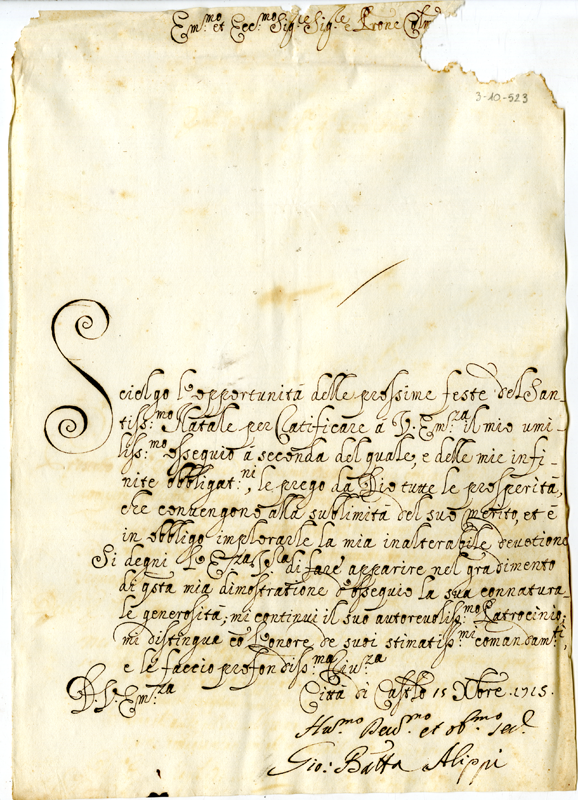 Em:mo et Ecc:mo Sig:re Sig:re e Prone Col:mo
3-10-523
Scielgo l'opportunità delle prossime feste del San-
tiss:mo Natale per ratificare a V. Em:za il mio umi-
liss:mo ossequio à seconda del quale, e delle mie infi-
nite obbligat:ni, le prego da Dio tutte le prosperità,
che convengono alla sublimità del suo merito, et è
in obbligo implorarle la mia inalterabile devotione
Si degni l'Em:za V:ra di fare apparire nel gradimento
di q̃sta mia dimostratione d'ossequio la sua connatura-
le generosità; mi continui il suo autorevoliss:mo Patrocinio;
mi distingua cõ l'onore de suoi stimatiss:mi comandam:ti,
e le faccio profondiss:ma River:za
D. V. Em:za
Città di Castello 15 Xbre 1715.
Hu:mo Dev:mo et ob:mo ser:
Gio: Batta Alippi